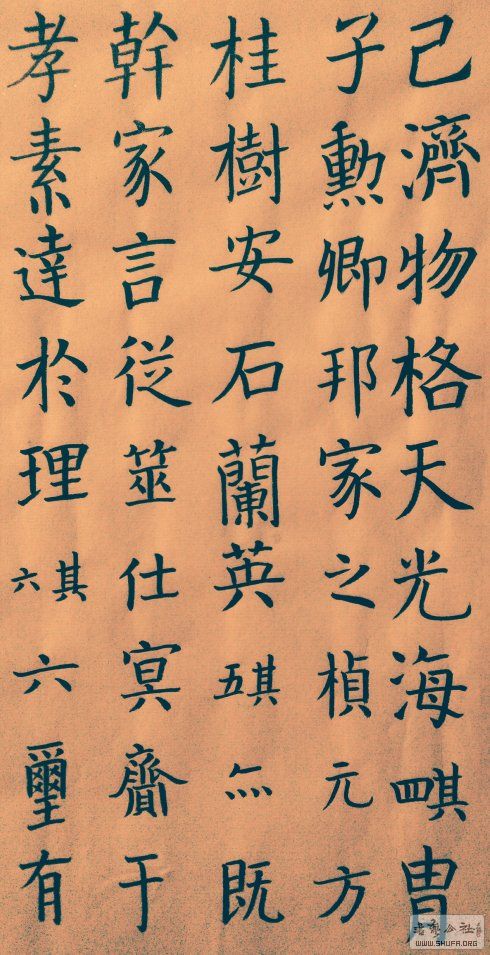 己濟物格天光海其四冑
子勳卿邦家之楨元方
桂樹安石蘭英其五既
幹家言從筮仕冥齎于
孝素達於理其六六璽有
WWW.SHUFA.ORG